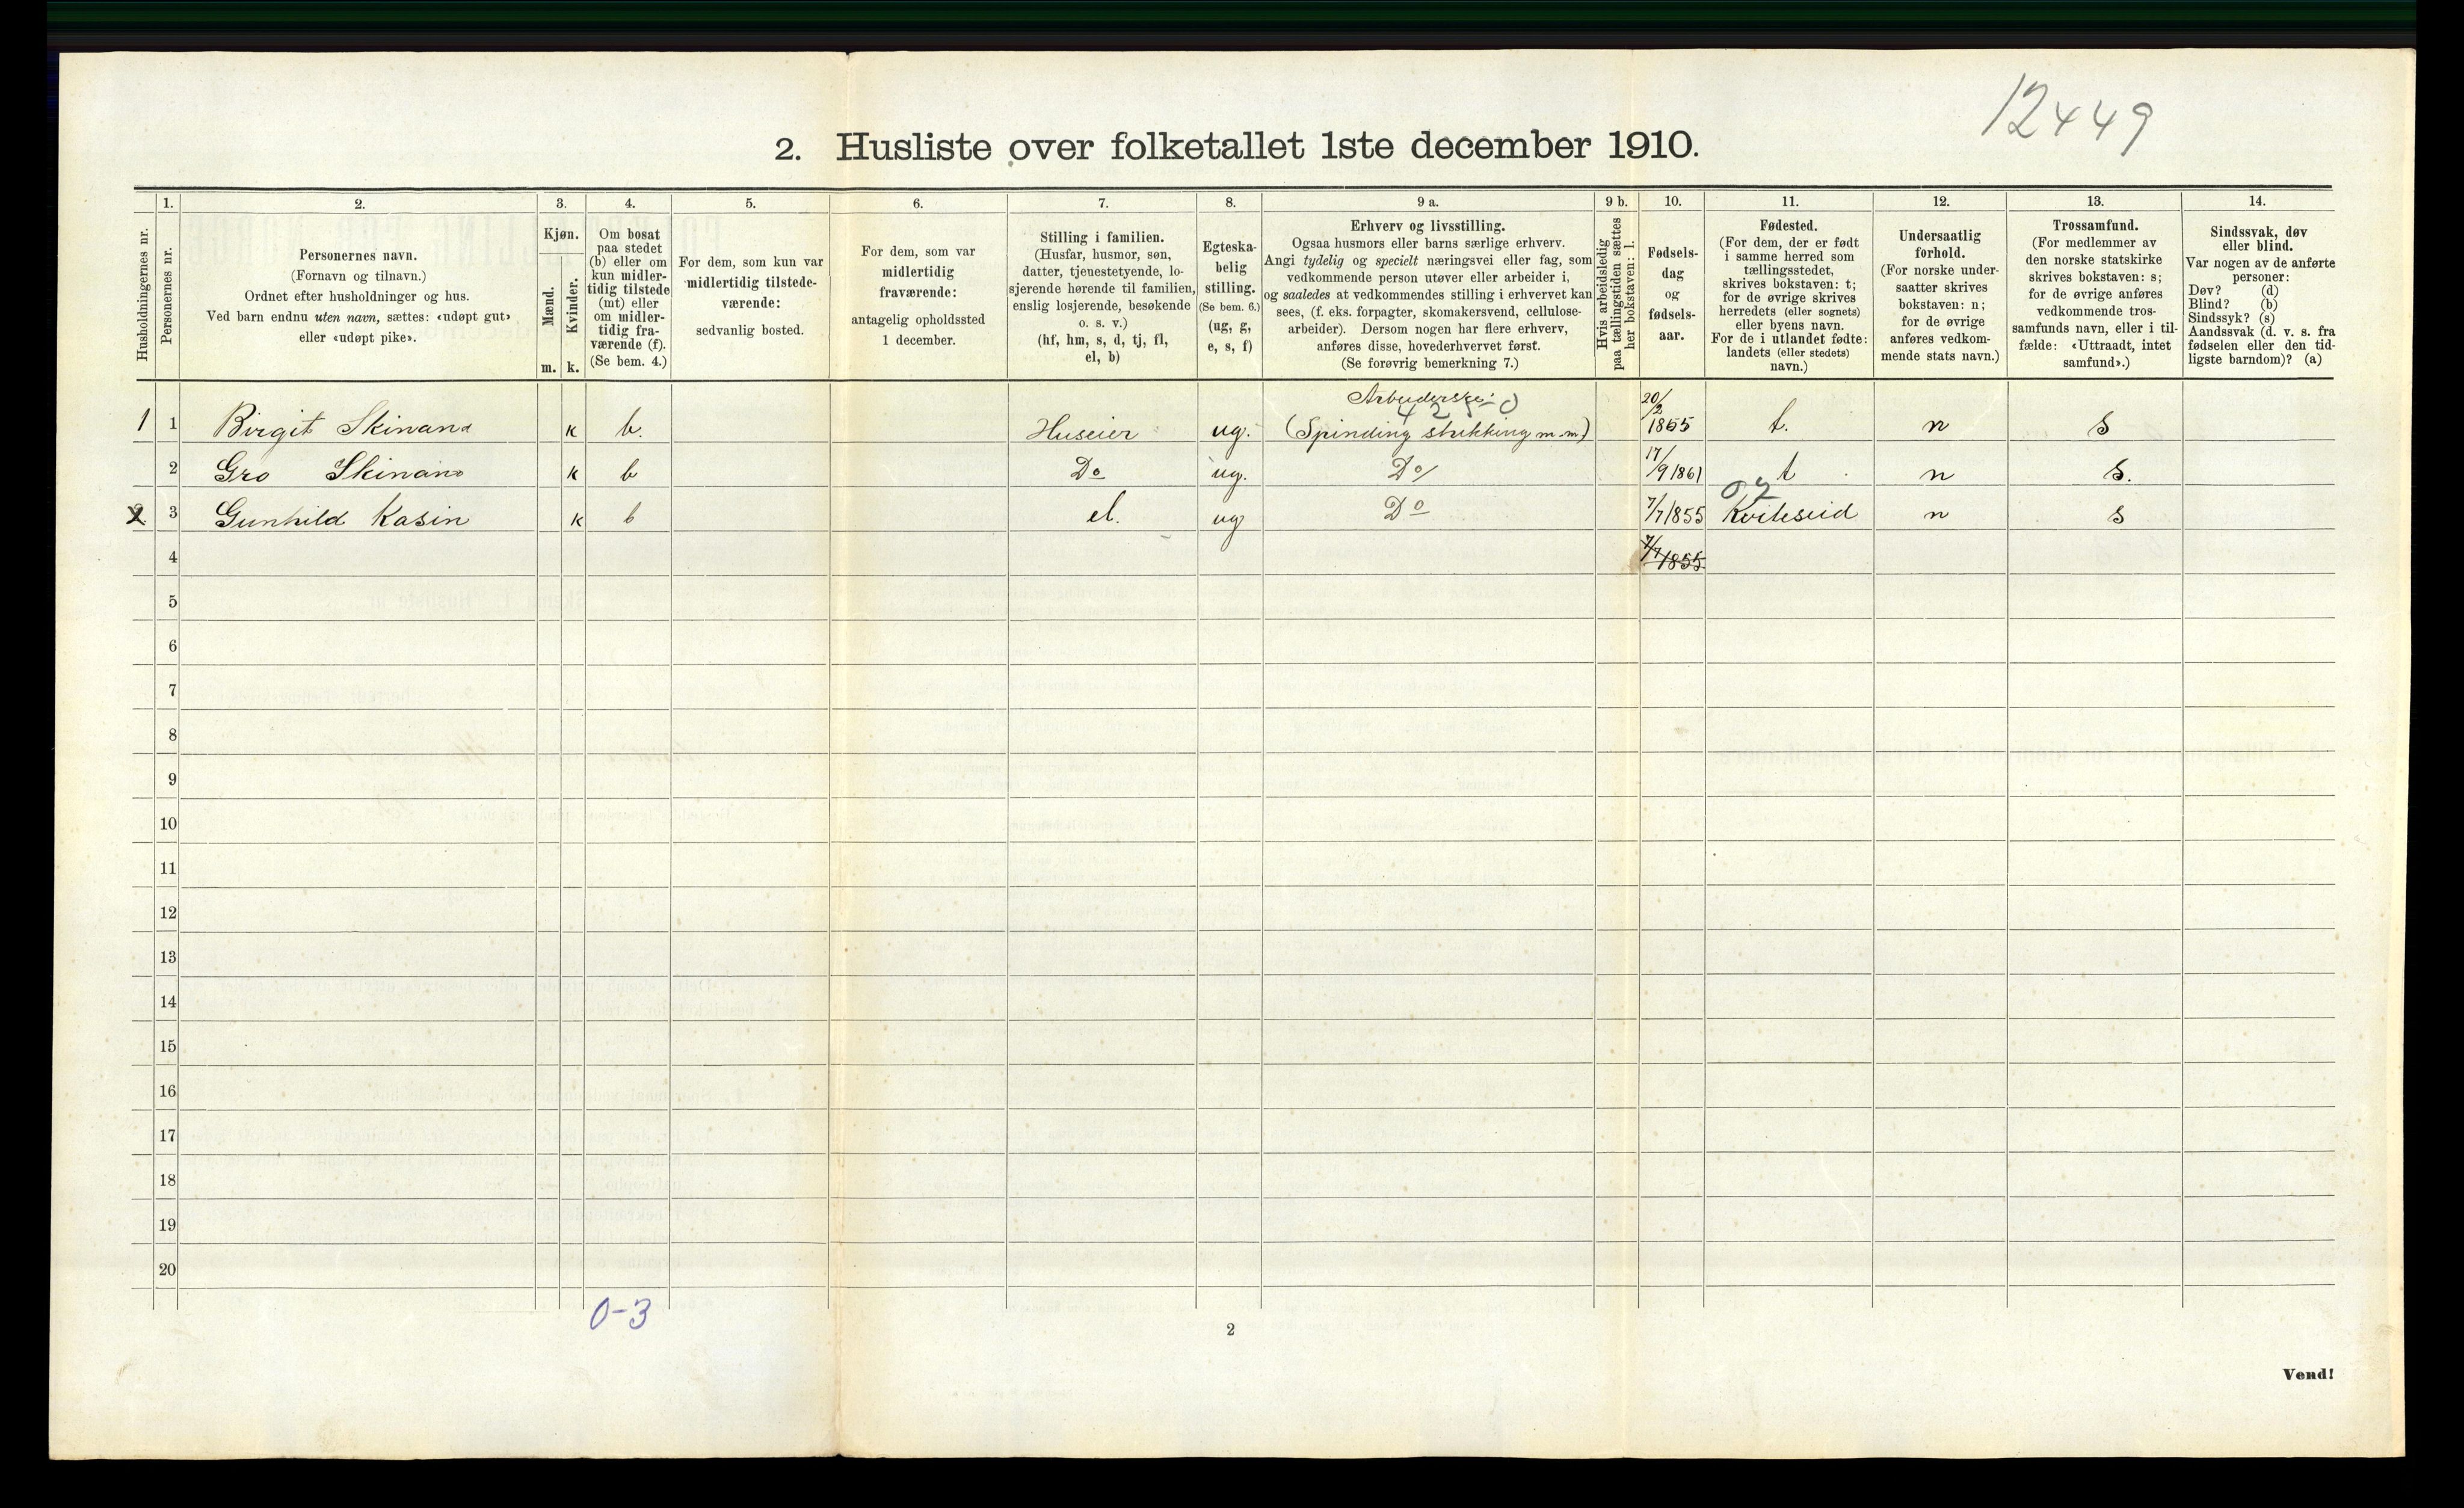 12449
2. Husliste over folketallet 1ste december 1910.
Husholdningernes nr.
1.
Personernes nr.
2.
Personernes navn.
(Fornavn og tilnavn.)
Ordnet efter husholdninger og hus.
Ved barn endnu uten navn, sættes: «udøpt gut»
eller «udøpt pike».
3.
Kjøn.
Mænd.
Kvinder.
m. k.
4.
Om bosat
paa stedet
(b) eller om
kun midler-
tidig tilstede
(mt) eller
om midler-
tidig fra-
værende (f).
(Se bem. 4.)
5.
For dem, som kun var
midlertidig tilstede-
værende:
sedvanlig bosted.
6.
For dem, som var
midlertidig
fraværende:
antagelig opholdssted
1 december.
7.
Stilling i familien.
(Husfar, husmor, søn,
datter, tjenestetyende, lo-
sjerende hørende til familien,
enslig losjerende, besøkende
o. s. v.)
(hf, hm, s, d, tj, fl,
el, b)
8.
Egteska-
belig
stilling.
(Se bem. 6.)
(ug, g,
e, s, f)
9 a.
Erhverv og livsstilling.
Ogsaa husmors eller barns særlige erhverv.
Angi tydelig og specielt næringsvei eller fag, som
vedkommende person utøver eller arbeider i,
og saaledes at vedkommendes stilling i erhvervet kan
sees, (f. eks. forpagter, skomakersvend, cellulose-
arbeider). Dersom nogen har flere erhverv,
anføres disse, hovederhvervet først.
(Se forøvrig bemerkning 7.)
9 b.
Hvis arbeidsledig
paa tællingstiden sættes
her bokstaven: l.
10.
Fødsels-
dag
og
fødsels-
aar.
11.
Fødested.
(For dem, der er født
i samme herred som
tællingsstedet,
skrives bokstaven: t;
for de øvrige skrives
herredets (eller sognets)
eller byens navn.
For de i utlandet fødte:
landets (eller stedets)
navn.)
12.
Undersaatlig
forhold.
(For norske under-
saatter skrives
bokstaven: n;
for de øvrige
anføres vedkom-
mende stats navn.)
13.
Trossamfund.
(For medlemmer av
den norske statskirke
skrives bokstaven: s;
for de øvrige anføres
vedkommende tros-
samfunds navn, eller i til-
fælde: «Uttraadt, intet
samfund».)
14.
Sindssvak, døv
eller blind.
Var nogen av de anførte
personer:
Døv? (d)
Blind? (b)
Sindssyk? (s)
Aandssvak (d. v. s. fra
fødselen eller den tid-
ligste barndom)? (a)
Arbeiderske: 20/2
1 1 Birgit Skinand k b. Huseier ug. (Spinding strikking m.m) 1855 t. n s
2 Gro Skinand k b Do ug. Do 17/9 1861 t n s.
2. 3 Gunhild Kasin k b el. ug Do 7/7 1855 Kviteseid n s
4 7/7 1855
5
6
7
8
9
10
11
12
13
14
15
16
17
18
19
20
0-3
2
Vend!